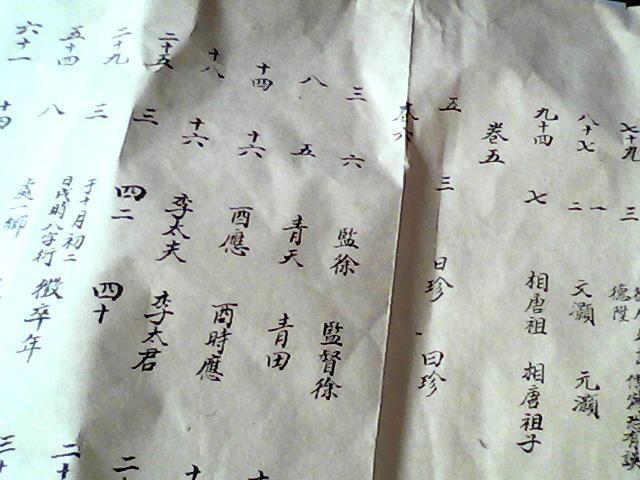 七十九 三 德陞
八十七 二一 文灝 元灝
九十四 七 相唐祖 相唐祖子
卷五
五 三 日珍 曰珍
卷六
三 六 監徐 監督徐
八 五 青天 青田
十四 十六 酉應 酉時應
十八 十六 李太夫 李太君
二十五 三 四二 四十
二十九 三 于十月初二
五十四 八 日戌時八字行 徵卒年
六十一 十四